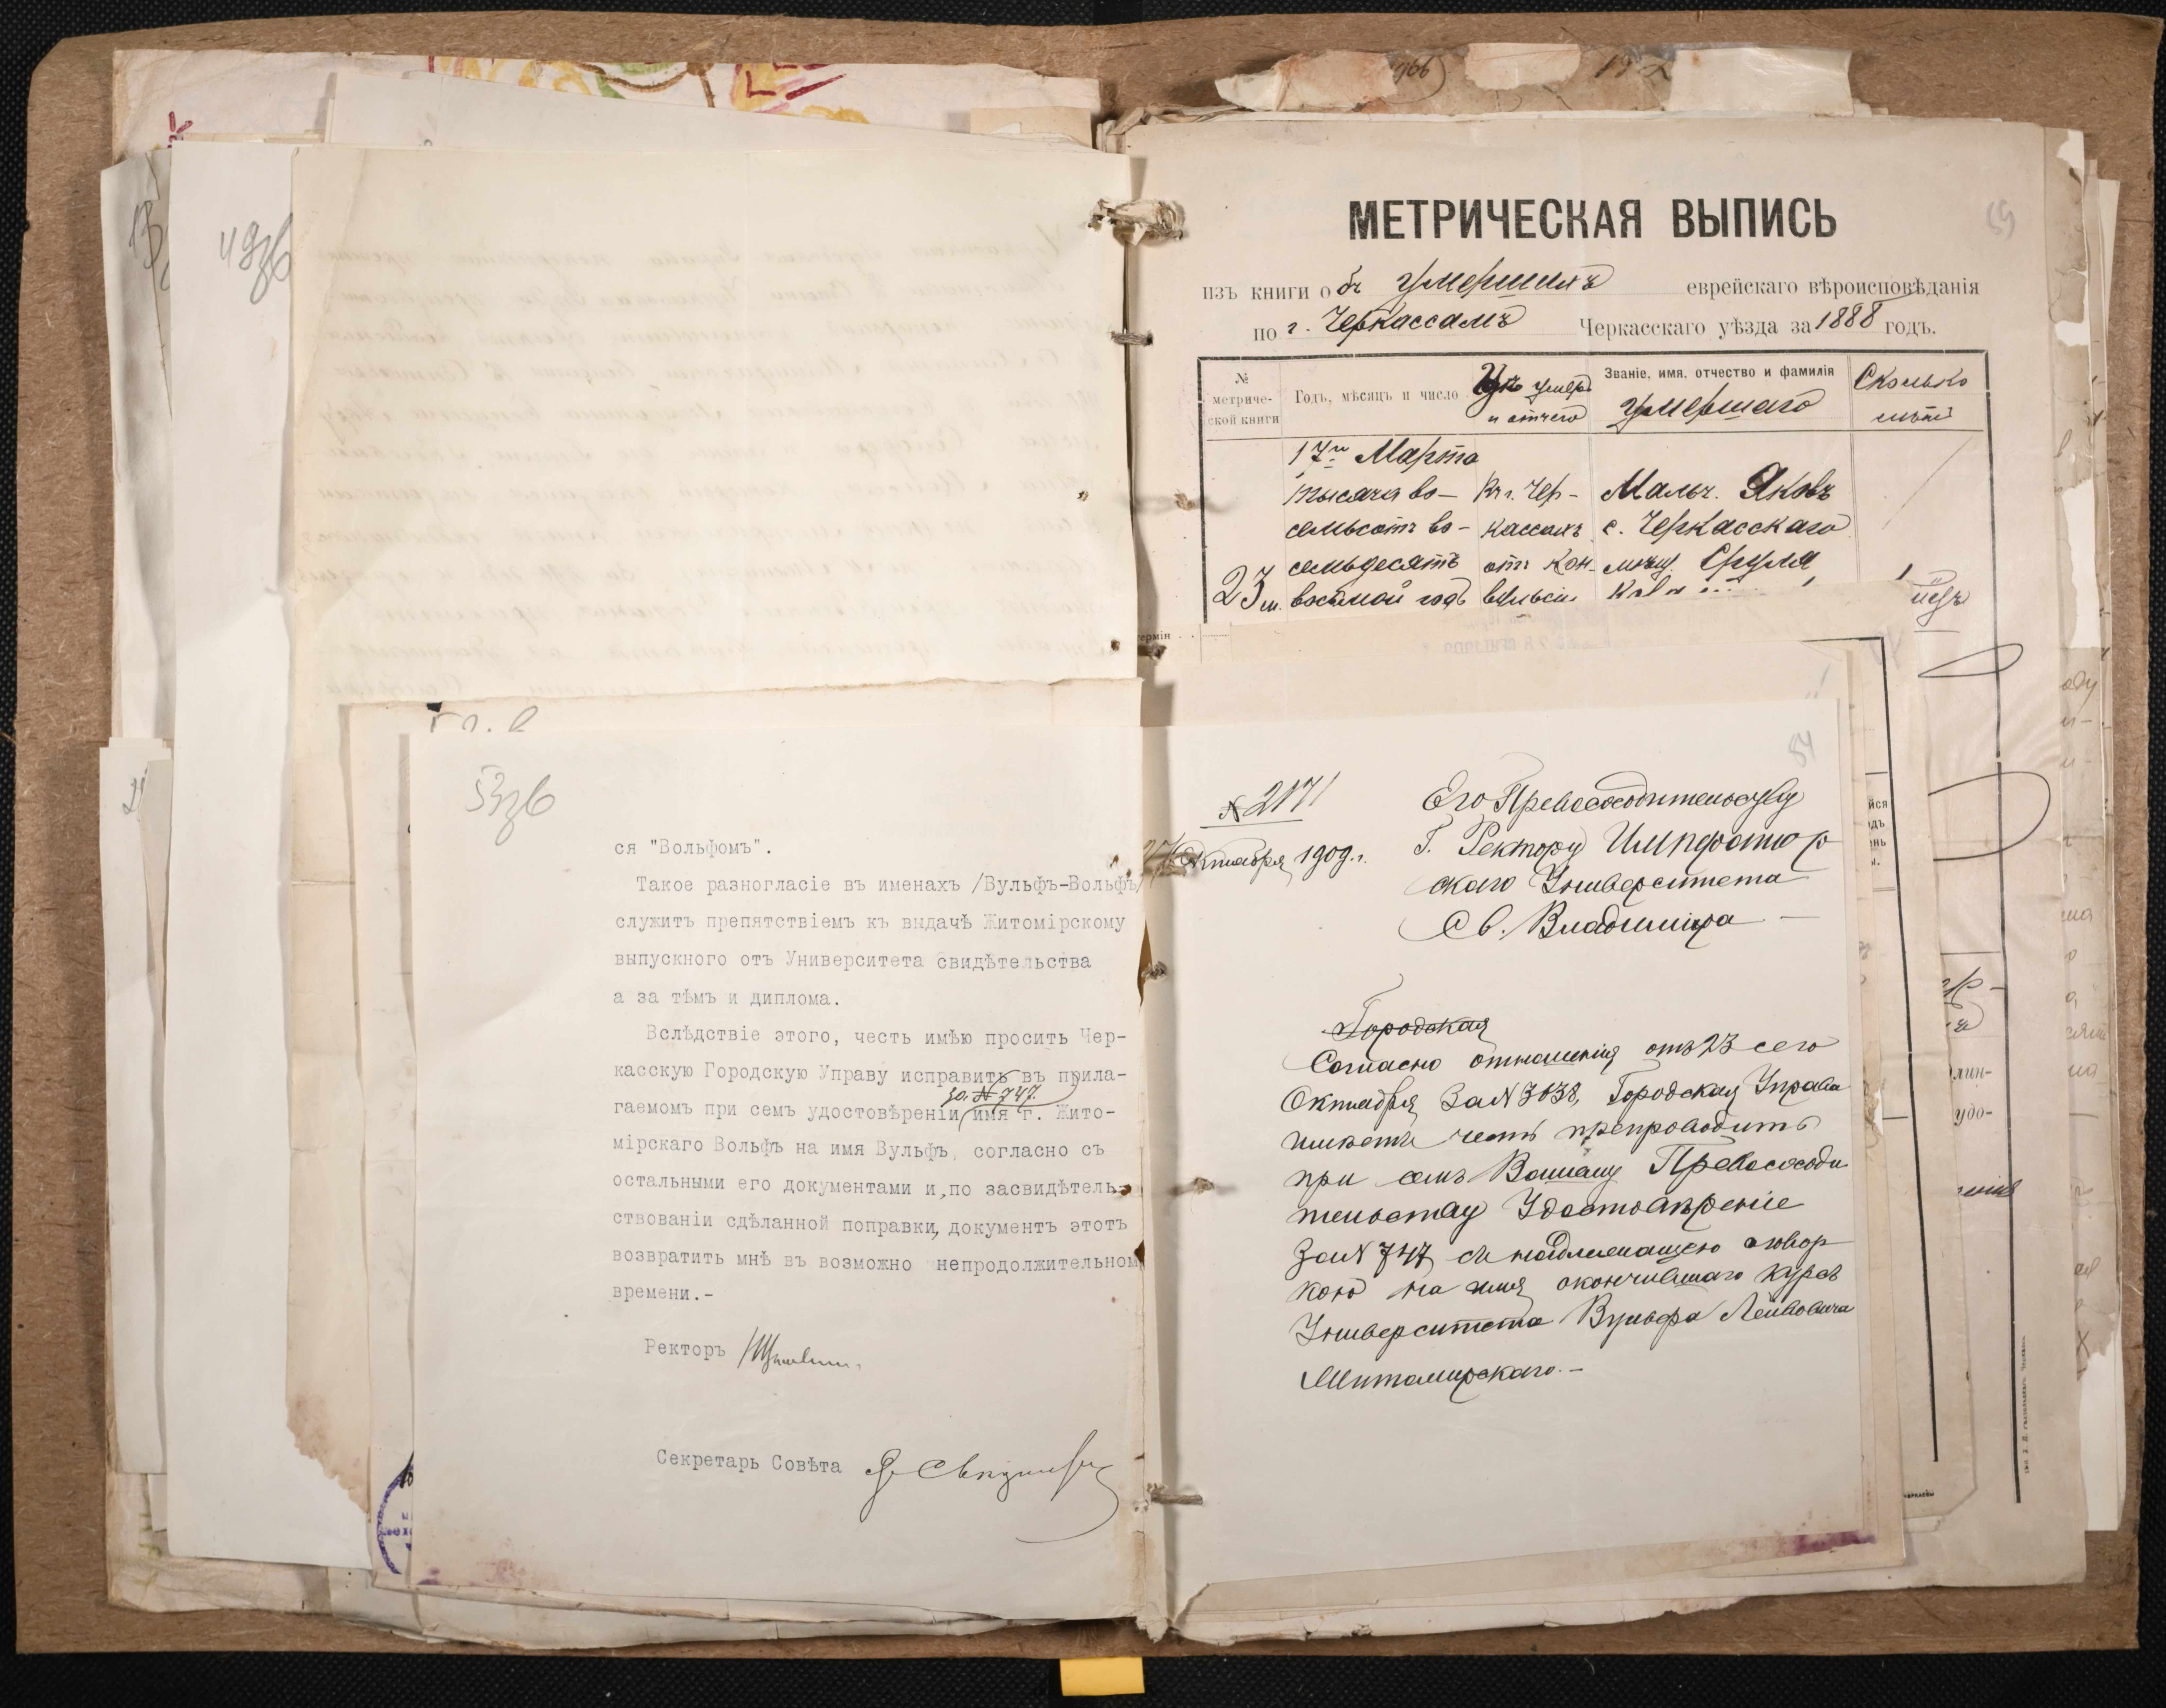 49зв
53зв
ся "Вольфомъ".
Такое разногласіе въ именахъ /Вульфъ-Вольфъ/
служитъ препятствіемъ къ выдачѣ Житомірскому
выпускного отъ Университета свидѣтельства
а за тѣмъ и диплома.
Вслѣдствіе этого, честь имѣю просить Чер-
касскую Городскую Управу исправить въ прила-
за № 747.
гаемомъ при семъ удостовѣреніи имя г. Жито-
мірскаго Вольфъ на имя Вульфъ, согласно съ
остальными его документами и, по засвидѣтель-
ствованіи сдѣланной поправки, документъ этотъ
возвратить мнѣ въ возможно непродолжительном
времени.-
Ректоръ
Секретарь Совѣта
59
МЕТРИЧЕСКАЯ ВЫПИСЬ
изъ книги объ умершихъ еврейскаго вѣроисповѣданія
по г. Черкассамъ Черкасскаго уѣзда за 1888 годъ.
№ метриче-ской книги
Годъ, мѣсяцъ и число
умеръ и отчего
Званіе, имя, отчество и фамилія умершаго
Сколько лѣтъ
17го Марта
тысяча во-
семьсотъ во-
семьдесятъ
восьмой годъ
23 м.
въ г. Чер-
кассахъ
отъ кон-
вульсіи
Мальч. Яковъ
с. Черкасскаго
мѣщ. Сруля
54
№ 2171
Октября 1909 г.
Его Превосходительству
Г. Ректору Император
скаго Университета
Св. Владиміра
Городская
Согласно отношенія отъ 23 сего
Октября за № 3038, Городская Управа
имѣетъ честь препроводить
при семъ Вашему Превосходи
тельству Удостовѣреніе
за № 747 съ надлежащею оговор
кою на имя окончившаго курсъ
Университета Вульфа Лейбовича
Житомирскаго.-